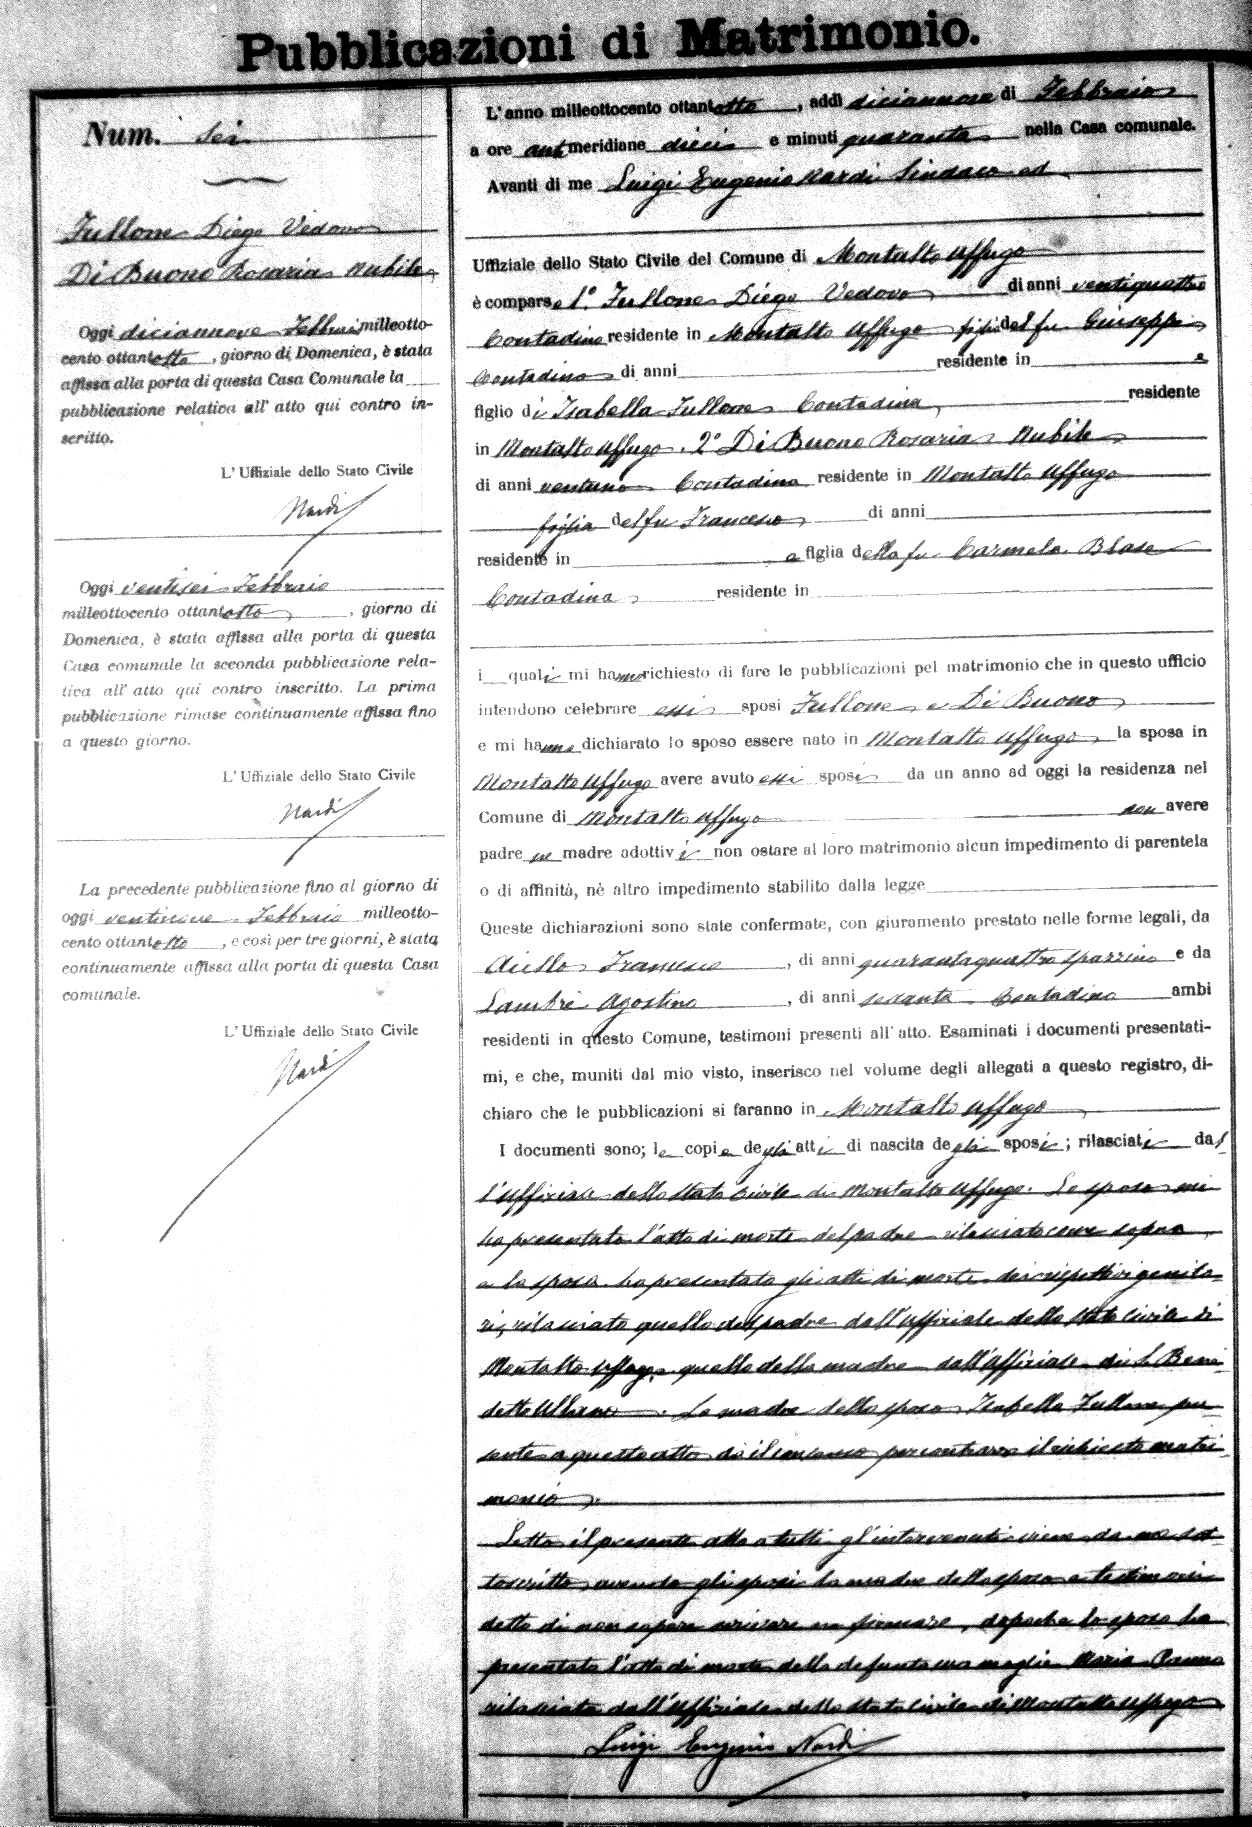 Pubblicazioni di Matrimonio.
Num. Sei
Fullone Diego Vedovo
Di Buono Rosaria Nubile
Oggi diciannove Febbraio milleotto-
cento ottantotto, giorno di Domenica, è stata
affissa alla porta di questa Casa Comunale la
pubblicazione relativa all' atto qui contro in-
scritto.
L' Uffiziale dello Stato Civile
Nardi
Oggi ventisei Febbraio
milleottocento ottantotto, giorno di
Domenica, è stata affissa alla porta di questa
Casa comunale la seconda pubblicazione rela-
tiva all' atto qui contro inscritto. La prima
pubblicazione rimase continuamente affissa fino
a questo giorno.
L' Uffiziale dello Stato Civile
Nardi
La precedente pubblicazione fino al giorno di
oggi ventinove Febbraio milleotto-
cento ottantotto, e così per tre giorni, è stata
continuamente affissa alla porta di questa Casa
comunale.
L' Uffiziale dello Stato Civile
Nardi
L' anno milleottocento ottantotto, addì diciannove di Febbraio
a ore antimeridiane dieci e minuti quaranta nella Casa comunale.
Avanti di me Luigi Eugenio Nardi Sindaco ed
Uffiziale dello Stato Civile del Comune di Montalto Uffugo
è comparso 1.° Fullone Diego Vedovo di anni ventiquattro
Contadino residente in Montalto Uffugo figlio del fu Giuseppe
Contadino di anni residente in e
figlio di Isabella Fullone Contadina, residente
in Montalto Uffugo. 2° Di Buono Rosaria Nubile
di anni ventuno Contadina residente in Montalto Uffugo
figlia del fu Francesco, di anni
residente in e figlia della fu Carmela Blase
Contadina residente in
i quali mi hanno richiesto di fare le pubblicazioni pel matrimonio che in questo ufficio
intendono celebrare essi sposi Fullone e Di Buono
e mi hanno dichiarato lo sposo essere nato in Montalto Uffugo, la sposa in
Montalto Uffugo avere avuto essi sposi da un anno ad oggi la residenza nel
Comune di Montalto Uffugo non avere
padre ne madre adottivi non ostare al loro matrimonio alcun impedimento di parentela
o di affinità, nè altro impedimento stabilito dalla legge
Queste dichiarazioni sono state confermate, con giuramento prestato nelle forme legali, da
Aiello Francesco, di anni quarantaquattro spazzino e da
Lambrè Agostino, di anni sessanta Contadino ambi
residenti in questo Comune, testimoni presenti all' atto. Esaminati i documenti presentati-
mi, e che, muniti dal mio visto, inserisco nel volume degli allegati a questo registro, di-
chiaro che le pubblicazioni si faranno in Montalto Uffugo,
I documenti sono; le copie degli atti di nascita degli sposi; rilasciati dal
l'Uffiziale dello Stato Civile di Montalto Uffugo. Lo sposo mi
ha presentato l'atto di morte del padre rilasciato come sopra,
e la sposa ha presentato gli atti di morte dei rispettivi genito-
ri, rilasciato quello del padre dall'Uffiziale dello Stato Civile di
Montalto Uffugo, quello della madre dall'Uffiziale di S. Bene-
detto Ullano. La madre dello sposo Isabella Fullone pre-
sente a questo atto dà il consenso per contrarre il richiesto matri-
monio.
Letto il presente atto a tutti gl'intervenuti viene da me sot-
toscritto avendo gli sposi la madre dello sposo e testimoni
detto di non sapere scrivere ne firmare, dopochè lo sposo ha
presentato l'atto di morte della defunta sua moglie Maria
rilasciato dall'Uffiziale dello Stato Civile di Montalto Uffugo
Luigi Eugenio Nardi